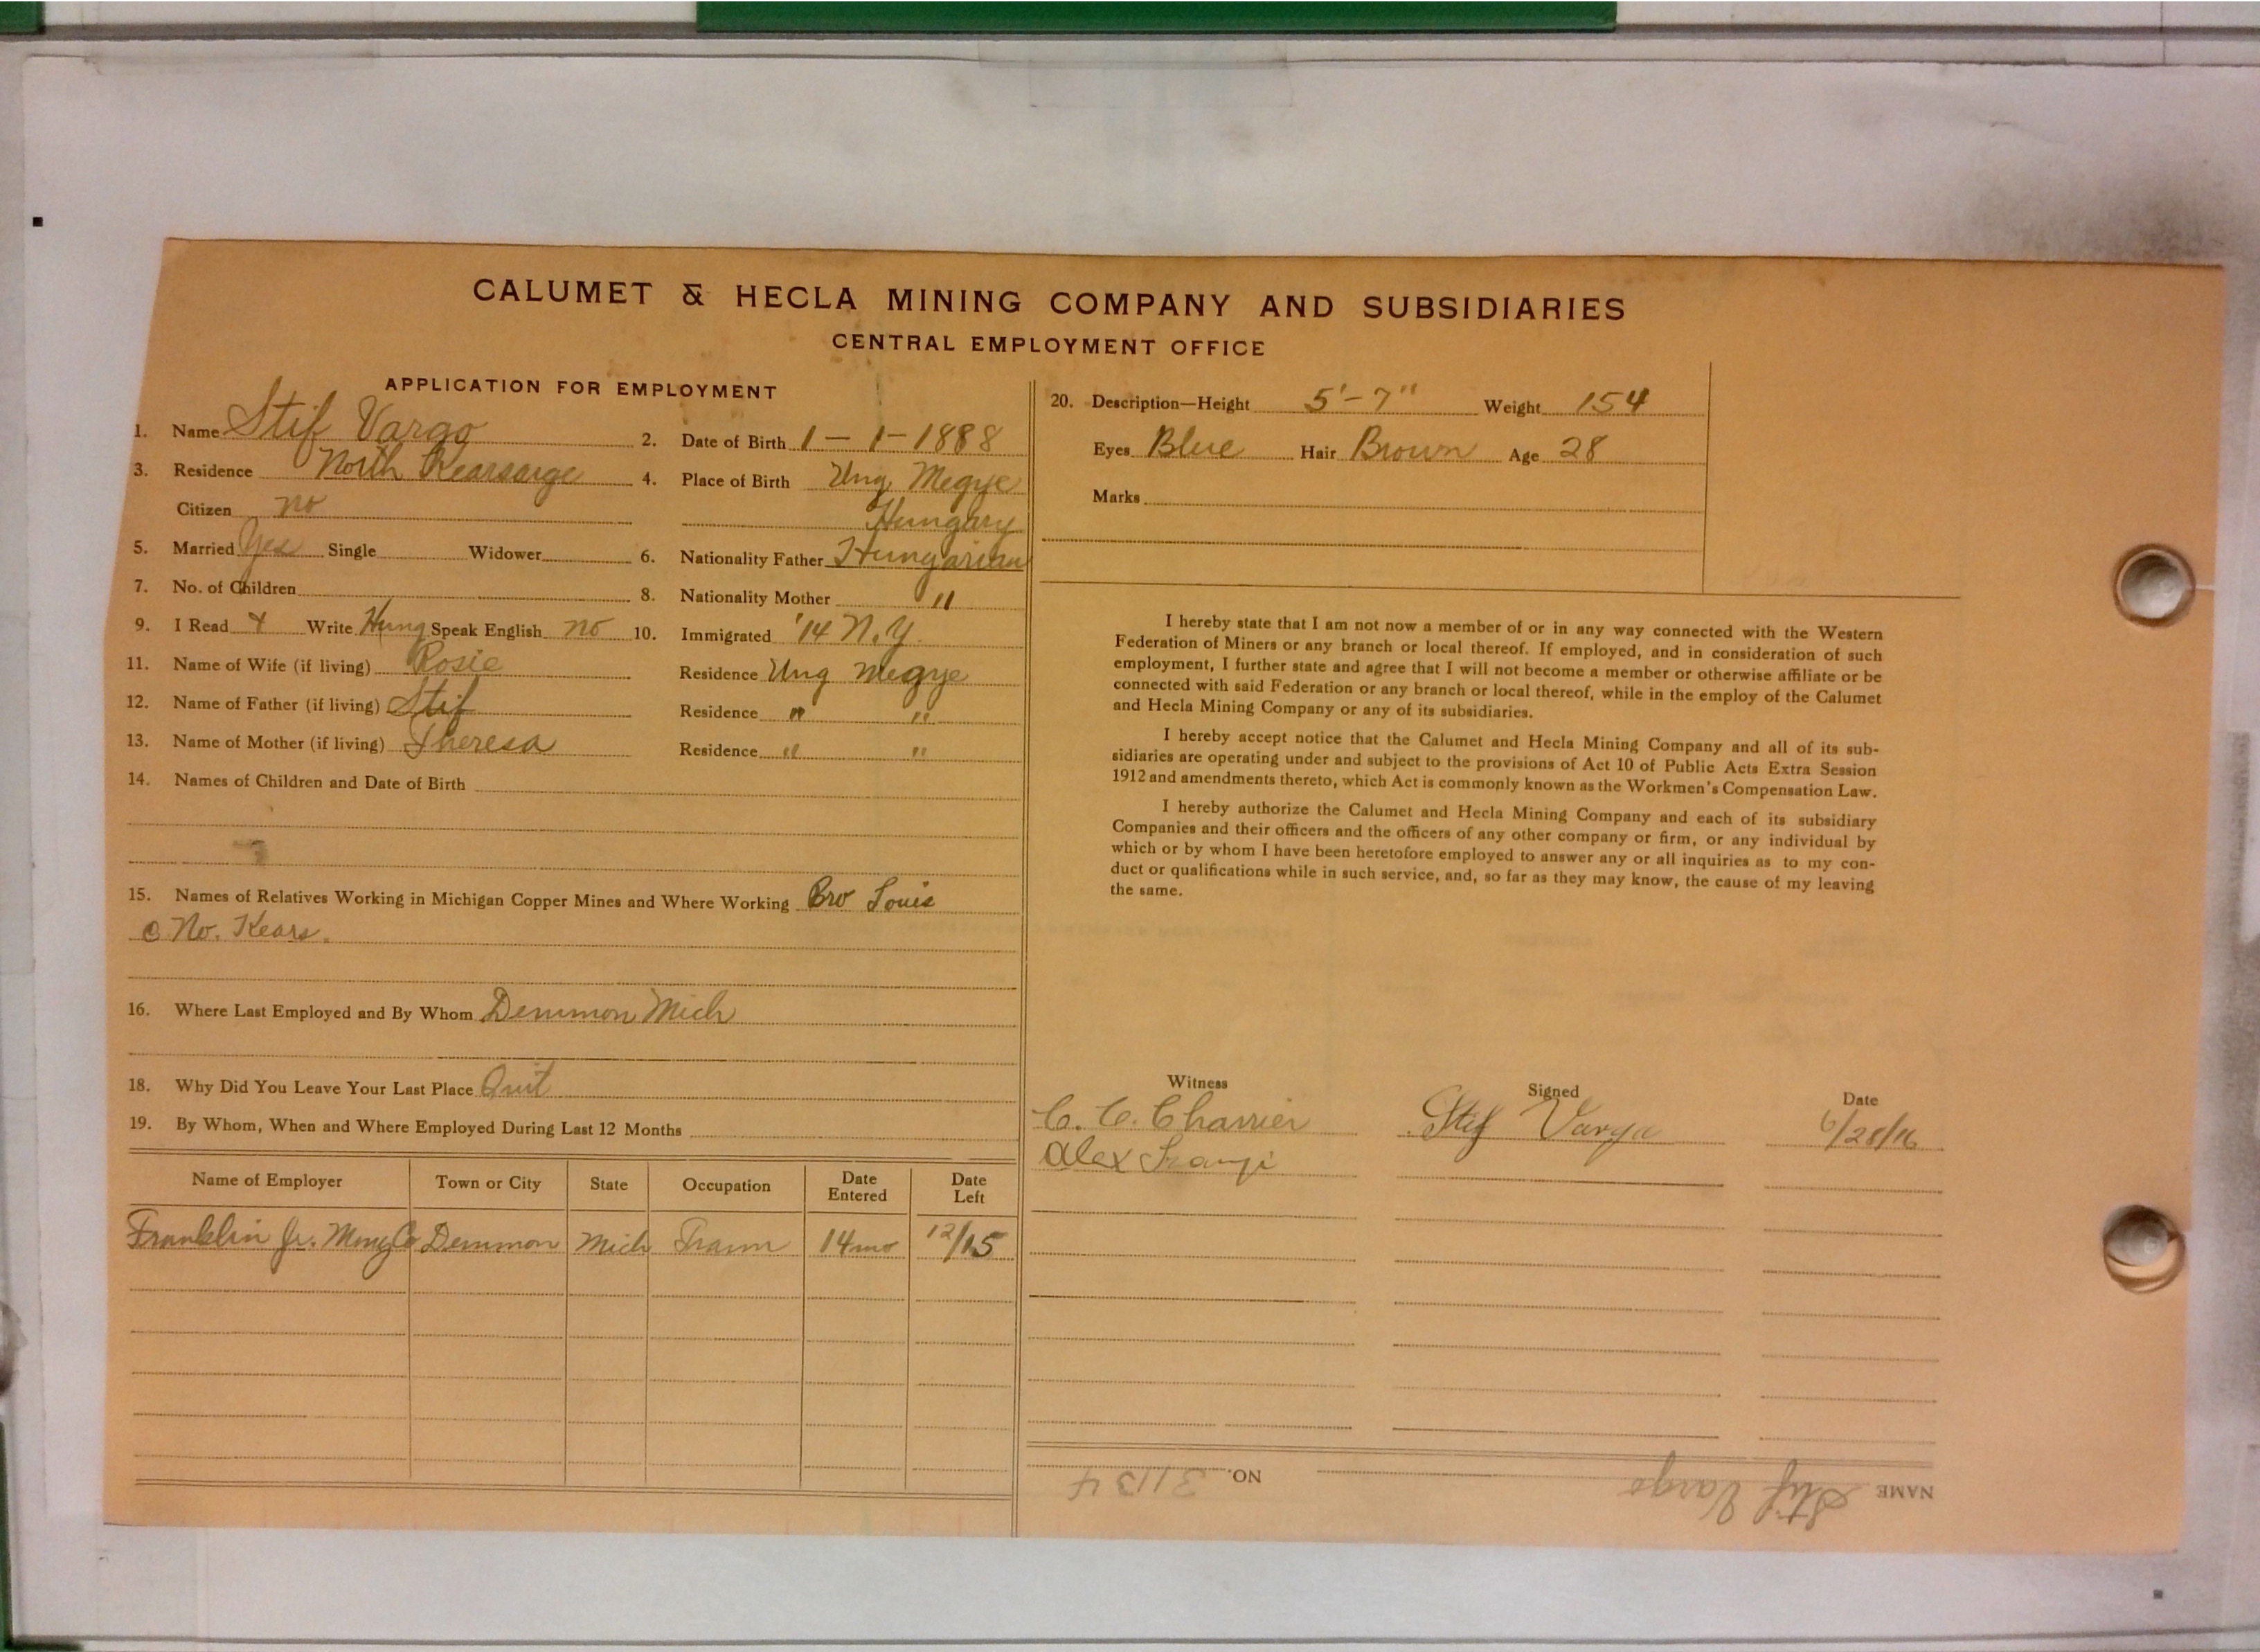 CALUMET & HECLA MINING COMPANY AND SUBSIDIARIES
CENTRAL EMPLOYMENT OFFICE
APPLICATION FOR EMPLOYMENT
1. Name Stif Vargo 2. Date of Birth 1 - 1 - 1888
3. Residence North Kearsarge 4. Place of Birth Ung Megye
Citizen no Hungary
5. Married Yes Single Widower 6. Nationality Father Hungarian
7. No. of Children 8. Nationality Mother "
9. I Read & Write Hung Speak English no 10. Immigrated '14 N.Y.
11. Name of Wife (if living) Rosie Residence Ung Megye
12. Name of Father (if living) Stif Residence " "
13. Name of Mother (if living) Theresa Residence " "
14. Names of Children and Date of Birth
15. Names of Relatives Working in Michigan Copper Mines and Where Working Bro Louis
@ No. Kears.
16. Where Last Employed and By Whom Demmon Mich
18. Why Did You Leave Your Last Place Quit
19. By Whom, When and Where Employed During Last 12 Months
Name of Employer Town or City State Occupation Date Entered Date Left
Franklin Jr. Mong Co Demmon Mich Tram 14 mo 12/15
20. Description—Height 5'-7" Weight 154
Eyes Blue Hair Brown Age 28
Marks
I hereby state that I am not now a member of or in any way connected with the Western
Federation of Miners or any branch or local thereof. If employed, and in consideration of such
employment, I further state and agree that I will not become a member or otherwise affiliate or be
connected with said Federation or any branch or local thereof, while in the employ of the Calumet
and Hecla Mining Company or any of its subsidiaries.
I hereby accept notice that the Calumet and Hecla Mining Company and all of its sub-
sidiaries are operating under and subject to the provisions of Act 10 of Public Acts Extra Session
1912 and amendments thereto, which Act is commonly known as the Workmen's Compensation Law.
I hereby authorize the Calumet and Hecla Mining Company and each of its subsidiary
Companies and their officers and the officers of any other company or firm, or any individual by
which or by whom I have been heretofore employed to answer any or all inquiries as to my con-
duct or qualifications while in such service, and, so far as they may know, the cause of my leaving
the same.
Witness Signed Date
C. C. Charrier Stif Varga 6/28/16
Alex
NAME Stif Vargo NO. 31134